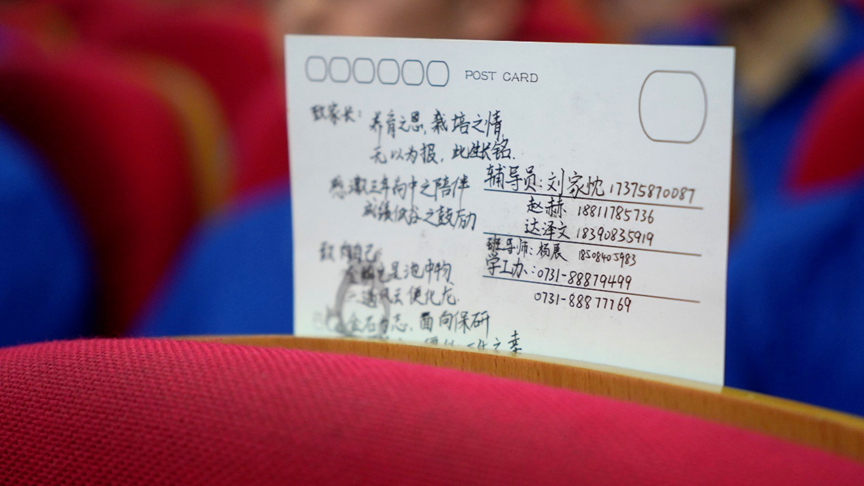 POST CARD
致家长：养育之恩，栽培之情，
无以为报，此生长铭.
感激三年高中之陪伴
成绩低谷之鼓励
致自己：
金鳞岂是池中物
一遇风云便化龙.
金石为志，面向保研
辅导员：刘家忱 17375870087
赵赫 18811785736
达泽文 18390835919
班导师：杨展 18508405983
学工办：0731-88879499
0731-88877169